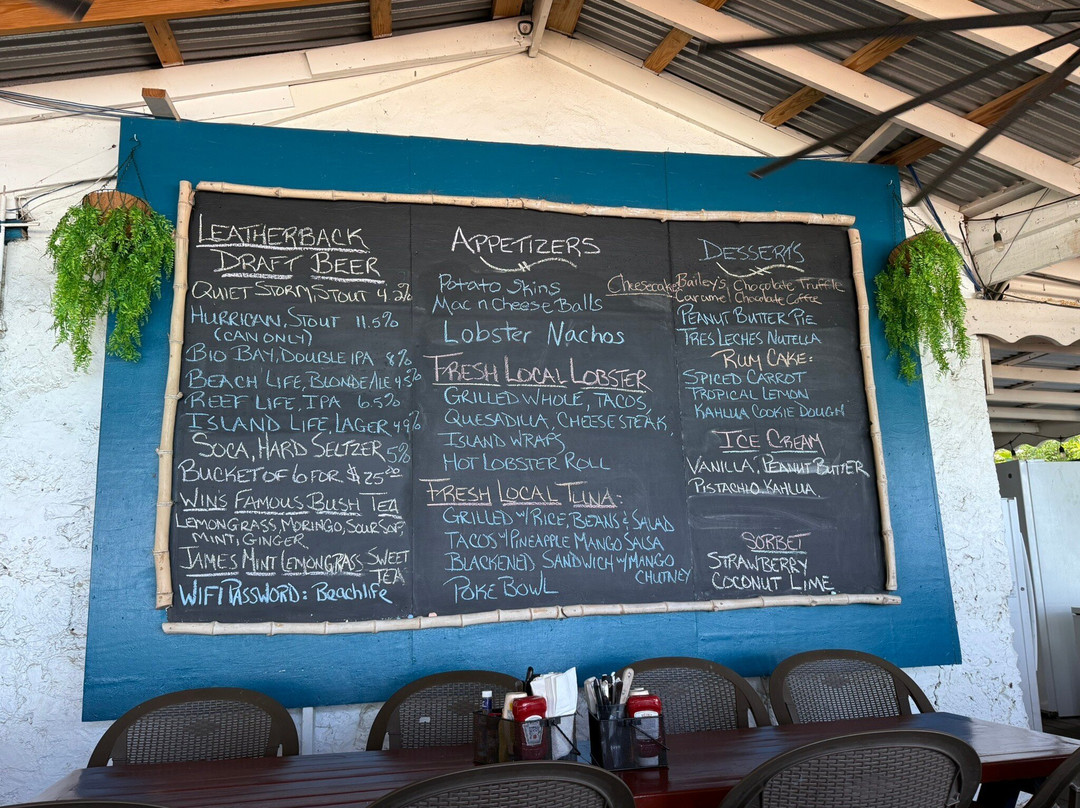 LEATHERBACK
DRAFT BEER
QUIET STORM, STOUT 4.2%
HURRICAN, STOUT 11.5%
(CAN ONLY)
BIO BAY, DOUBLE IPA 8%
BEACH LIFE, BLONDE ALE 4.5%
REEF LIFE, IPA 6.5%
ISLAND LIFE, LAGER 4.9%
SOCA, HARD SELTZER 5%
BUCKET OF 6 FOR $25.00
WIN'S FAMOUS BUSH TEA
LEMONGRASS, MORINGO, SOURSOP,
MINT, GINGER
JAMES MINT LEMONGRASS SWEET
TEA
WIFI PASSWORD: Beachlife
APPETIZERS
Potato Skins
Mac n Cheese Balls
Lobster Nachos
FRESH LOCAL LOBSTER
GRILLED WHOLE, TACOS,
QUESADILLA, CHEESE STEAK,
ISLAND WRAPS
HOT LOBSTER ROLL
FRESH LOCAL TUNA:
GRILLED W/ RICE, BEANS & SALAD
TACOS W/ PINEAPPLE MANGO SALSA
BLACKENED SANDWICH W/ MANGO
CHUTNEY
POKE BOWL
DESSERTS
Cheesecake Bailey's Chocolate Truffle
Caramel Chocolate Coffee
PEANUT BUTTER PIE
TRES LECHES NUTELLA
RUM CAKE:
SPICED CARROT
TROPICAL LEMON
KAHLUA COOKIE DOUGH
ICE CREAM
VANILLA, PEANUT BUTTER
PISTACHIO, KAHLUA
SORBET
STRAWBERRY
COCONUT LIME